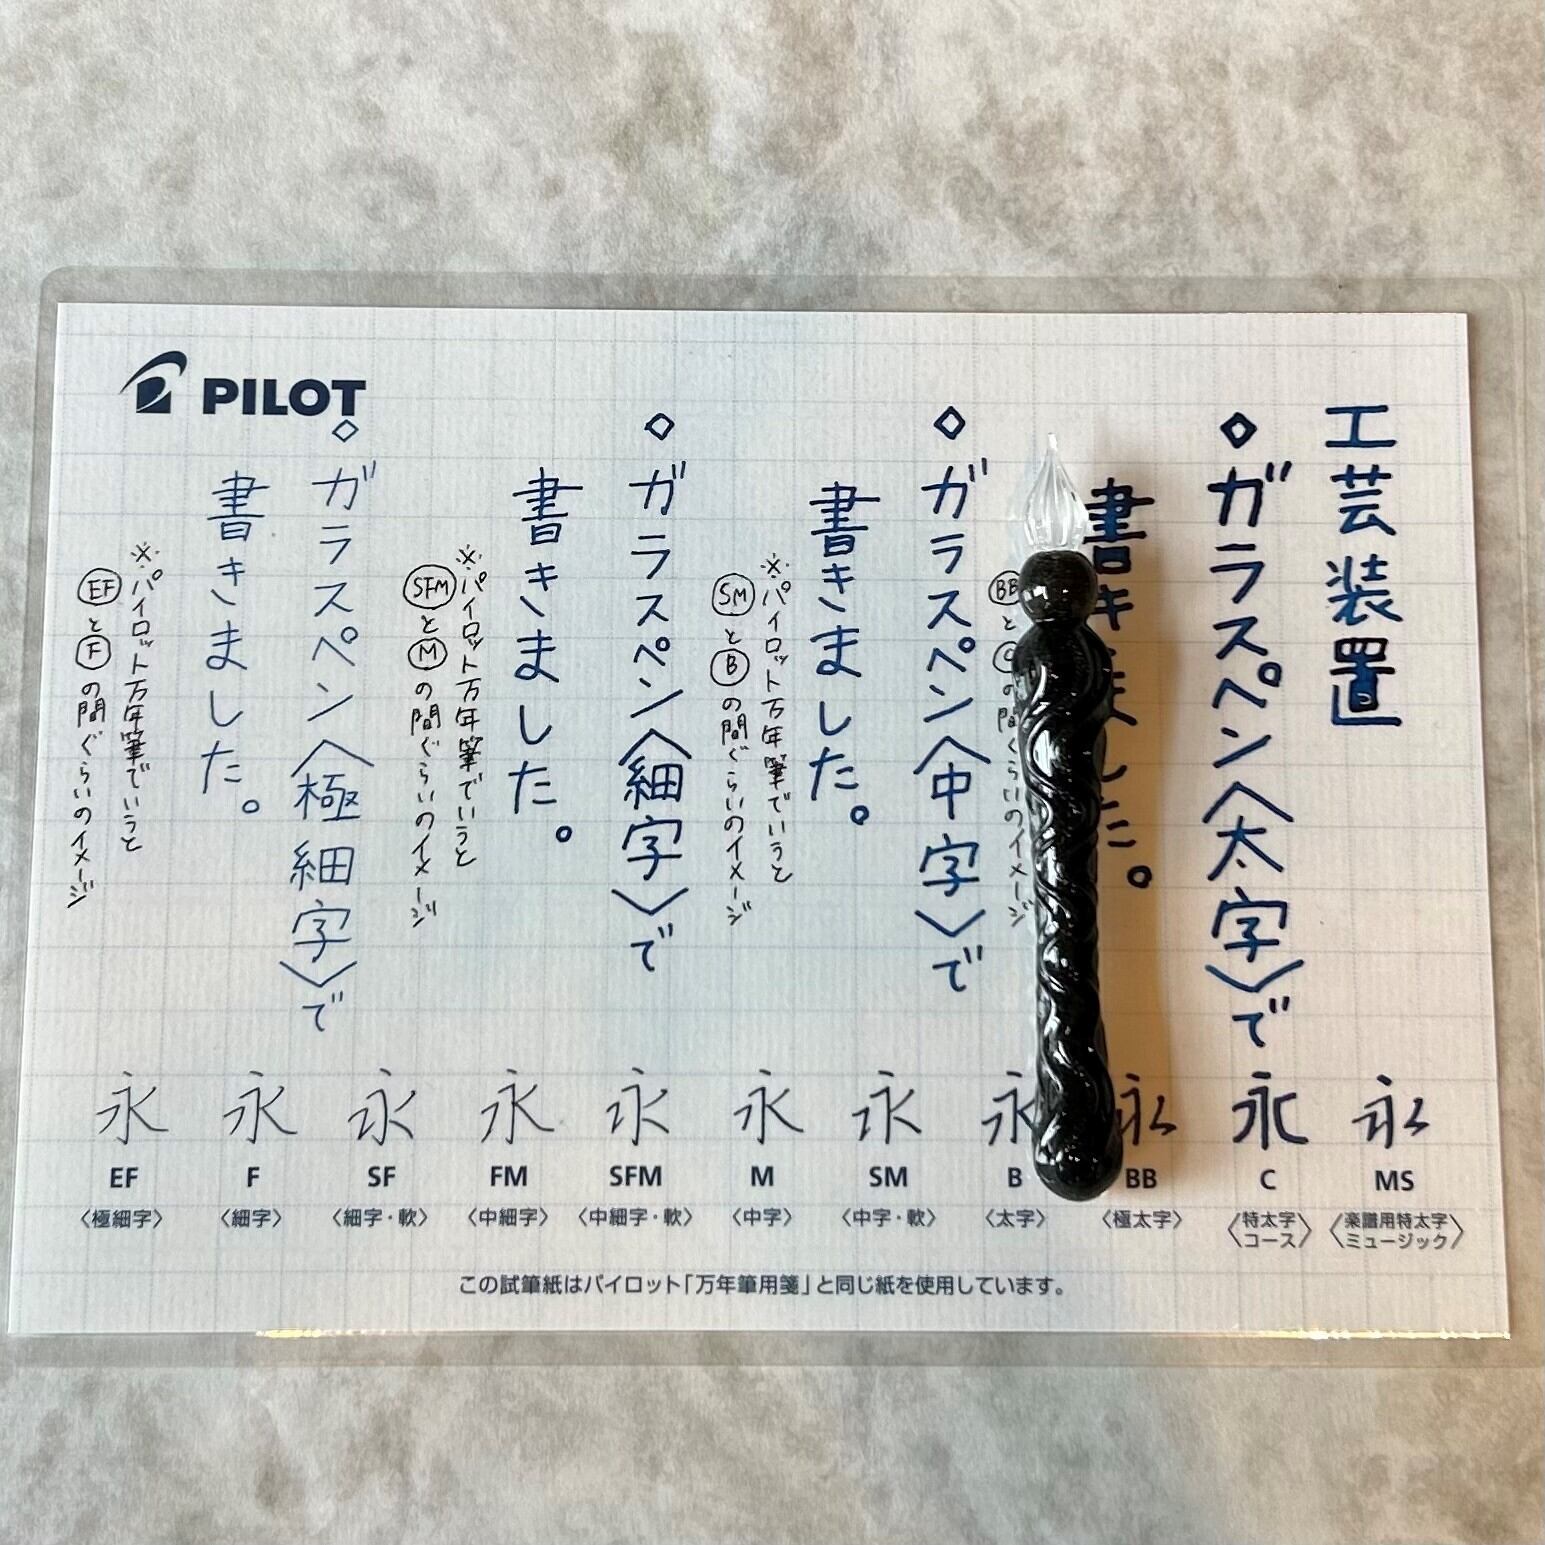 PILOT
工芸装置
◇ガラスペン〈太字〉で
書きました。
の間ぐらいのイメージ
◇ガラスペン〈中字〉で
書きました。
※パイロット万年筆でいうと
SMとBの間ぐらいのイメージ
◇ガラスペン〈細字〉で
書きました。
※パイロット万年筆でいうと
SFMとMの間ぐらいのイメージ
◇ガラスペン〈極細字〉で
書きました。
※パイロット万年筆でいうと
EFとFの間ぐらいのイメージ
永 永 永 永 永 永 永 永 永 永 永
EF F SF FM SFM M SM B BB C MS
〈極細字〉 〈細字〉 〈細字・軟〉 〈中細字〉 〈中細字・軟〉 〈中字〉 〈中字・軟〉 〈太字〉 〈極太字〉 〈特太字 コース〉 〈楽譜用特太字 ミュージック〉
この試筆紙はパイロット「万年筆用箋」と同じ紙を使用しています。